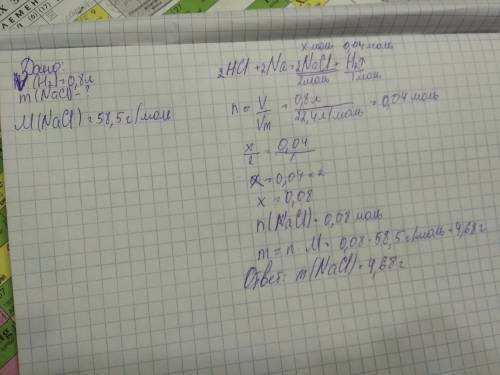 Дано:
V(H₂)=0,8л
m(NaCl)-?
M(NaCl)=58,5г/моль
x моль 0,04 моль
2HCl+2Na=2NaCl+H₂↑
2моль 1моль
n=V/Vm=0,8л/22,4л/моль=0,04моль
x/2=0,04/1
x=0,04·2
x=0,08
n(NaCl)=0,08моль
m=n·M=0,08·58,5г/моль=4,68г
Ответ: m(NaCl)=4,68г